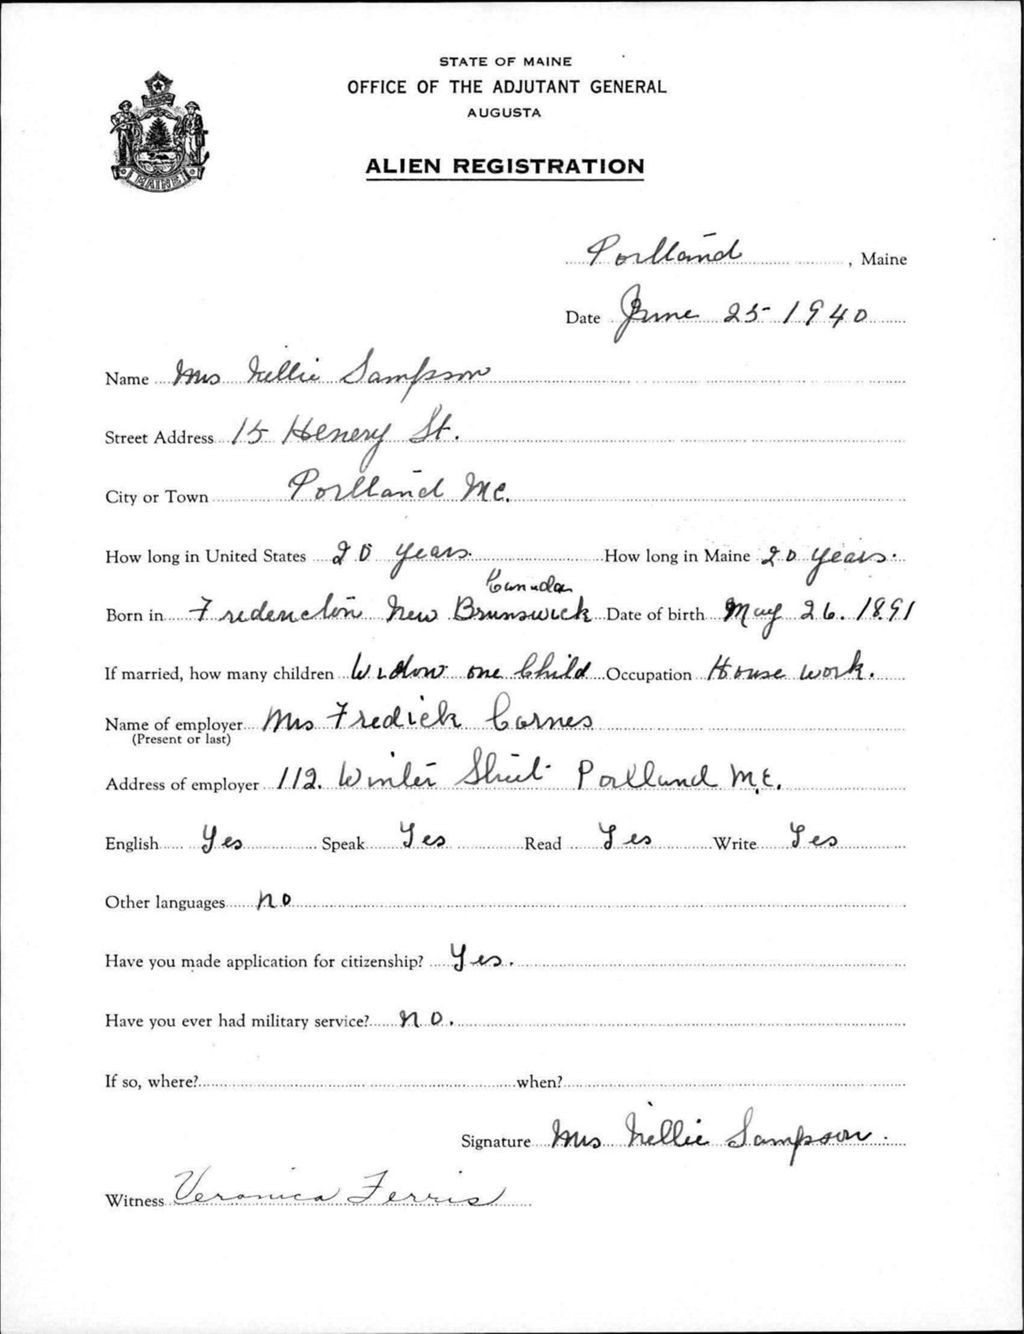 STATE OF MAINE
OFFICE OF THE ADJUTANT GENERAL
AUGUSTA
ALIEN REGISTRATION
MAINE
Portland, Maine
Date June 25 1940
Name Mrs Nellie Sampson
Street Address 15 Henery St.
City or Town Portland Me.
How long in United States 20 years. How long in Maine 20 years.
Canada
Born in Fredericton New Brunswick Date of birth May 26. 1891
If married, how many children Widow one Child Occupation House work.
Name of employer Mrs Fredick Carnes
(Present or last)
Address of employer 112. Winter Street Portland Me.
English Yes Speak Yes Read Yes Write Yes
Other languages no
Have you made application for citizenship? Yes.
Have you ever had military service? no.
If so, where? when?
Signature Mrs Nellie Sampson.
Witness Veronica Ferris